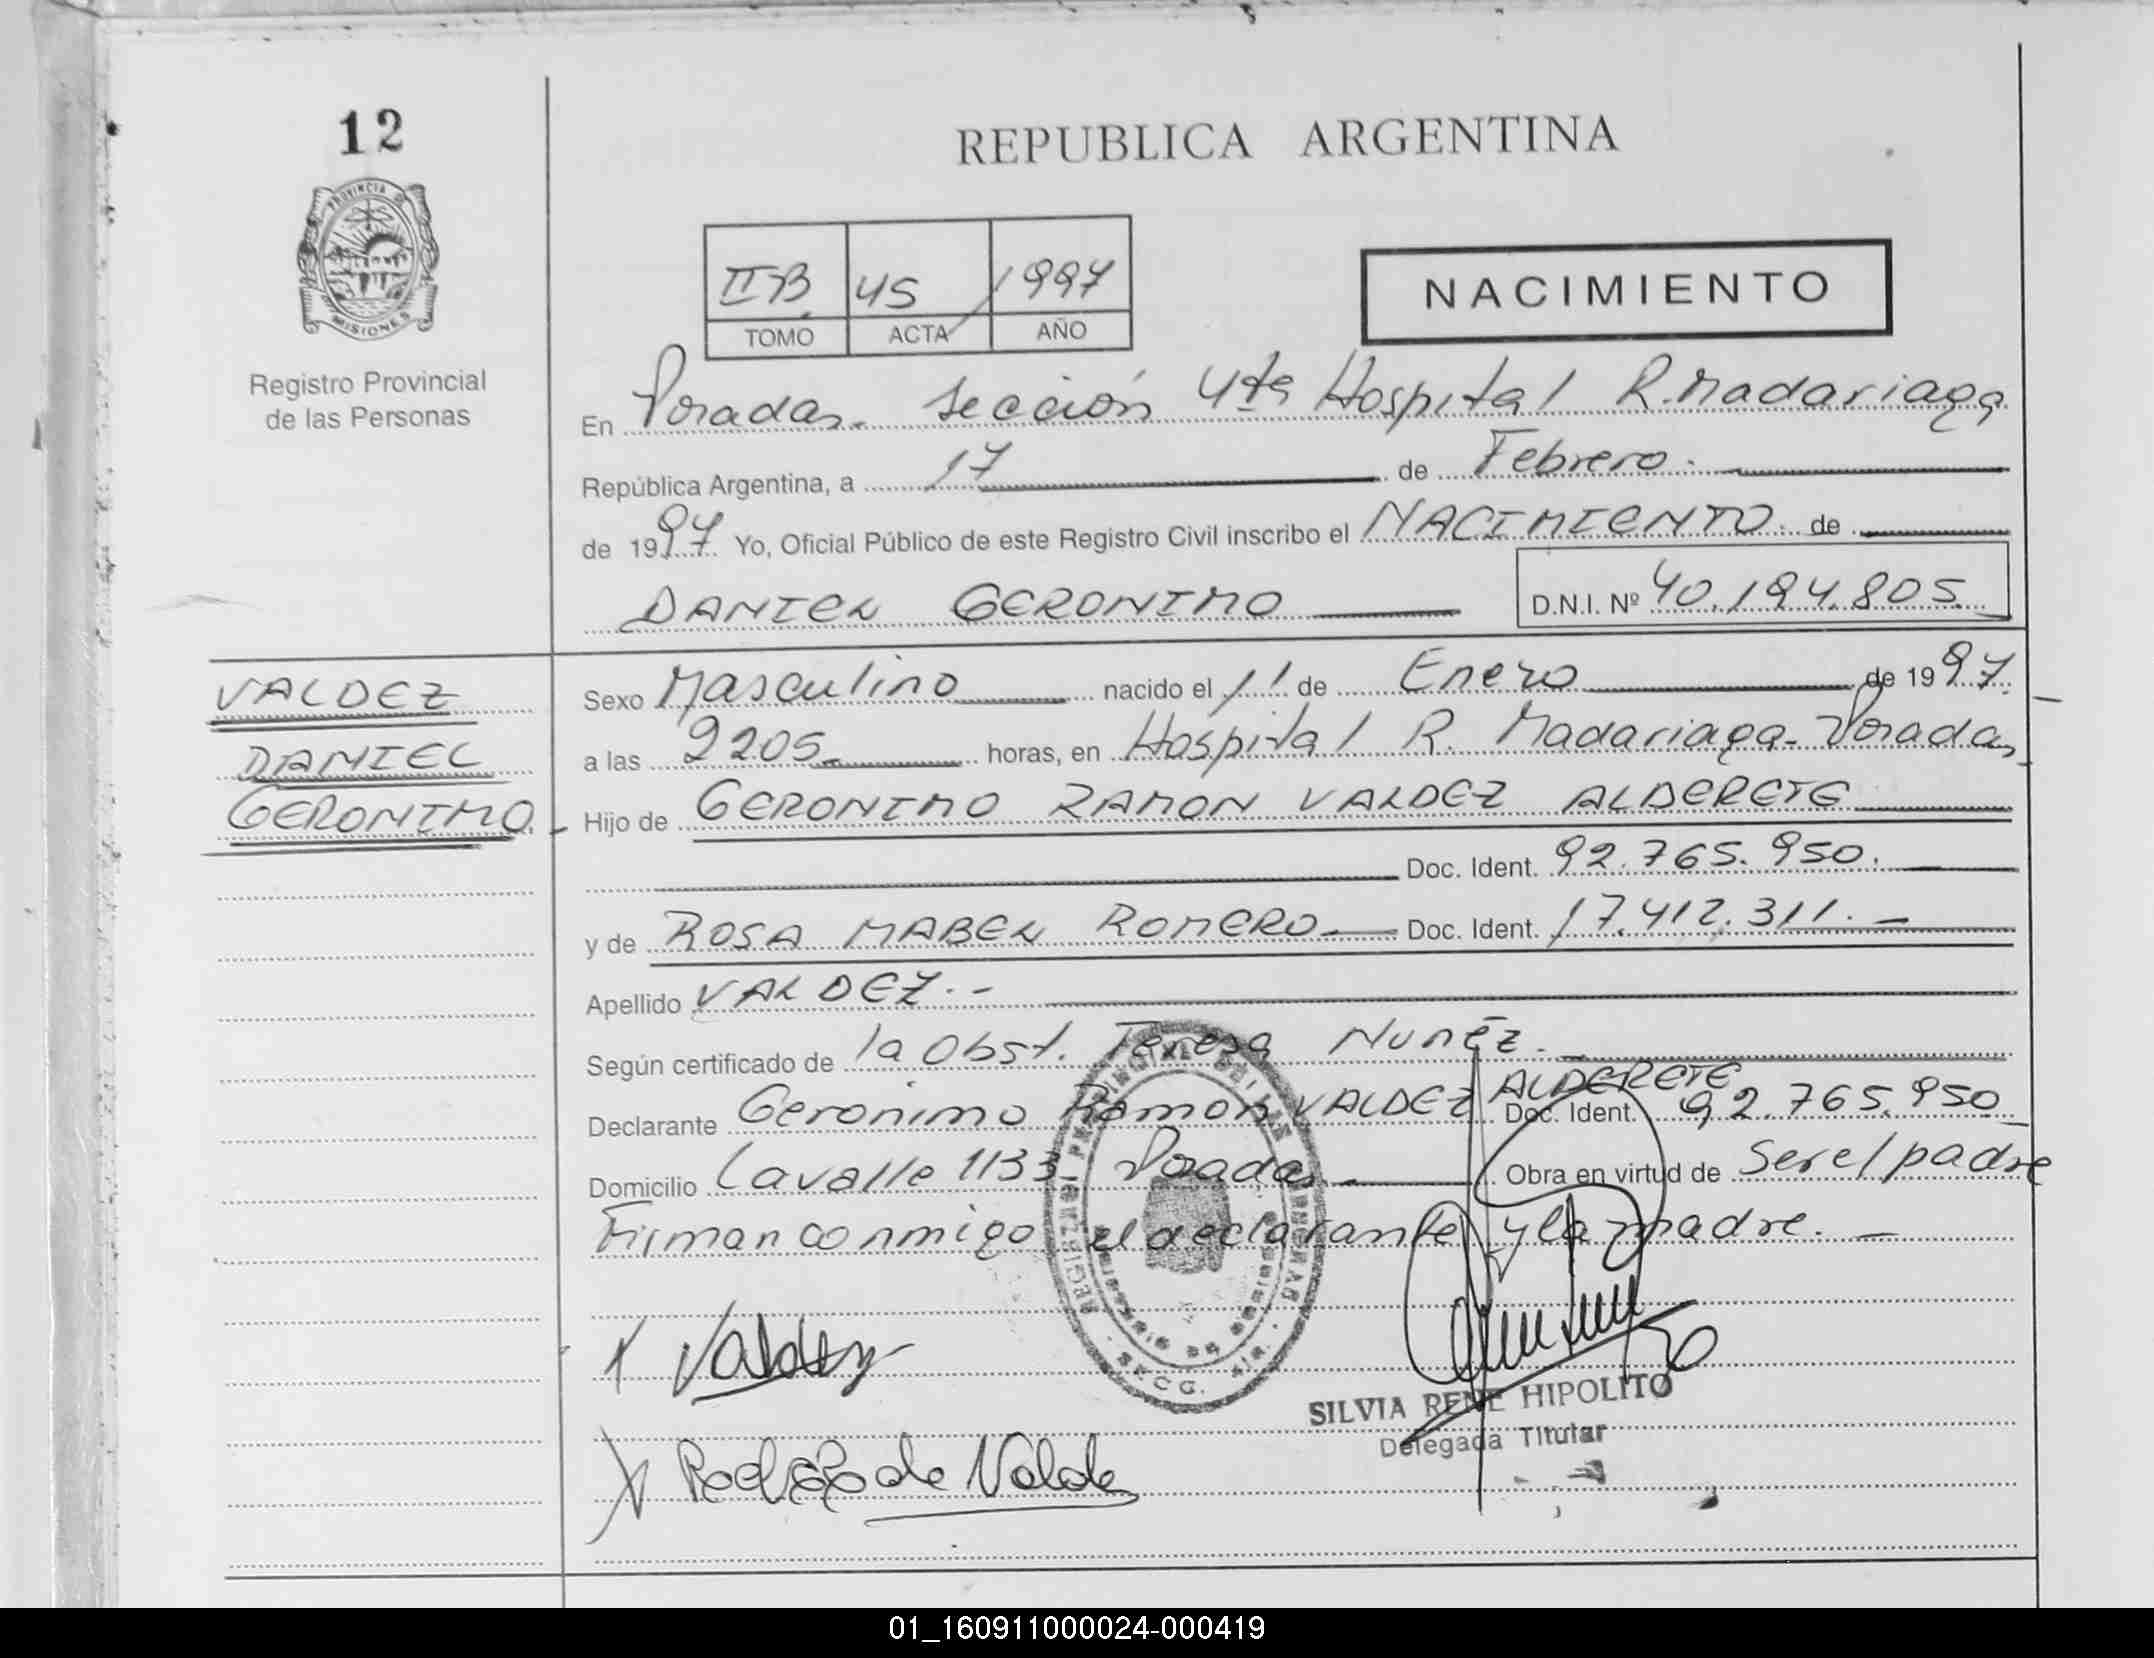 12
PROVINCIA DE
MISIONES
Registro Provincial
de las Personas
REPUBLICA ARGENTINA
II B 45 1997
TOMO ACTA AÑO
NACIMIENTO
En Posadas. Sección 4ta Hospital R. Madariaga
República Argentina, a 17 de Febrero.
de 1997 Yo, Oficial Público de este Registro Civil inscribo el NACIMIENTO. de
DANIEL GERONIMO D.N.I. Nº 40.194.805
VALDEZ
DANIEL
GERONIMO
Sexo Masculino nacido el 11 de Enero de 1997.
a las 2205 horas, en Hospital R. Madariaga - Posadas
Hijo de GERONIMO RAMON VALDEZ ALDERETE
Doc. Ident. 92.765.950.
y de ROSA MABEL ROMERO Doc. Ident. 17.412.311.-
Apellido VALDEZ.-
Según certificado de la Obst. Teresa Nuñez.
Declarante Geronimo Ramon VALDEZ ALDERETE Doc. Ident. 92.765.950
Domicilio Lavalle 1133 Posadas.- Obra en virtud de Ser el padre
Firman conmigo el declarante y la madre.-
Valdez
de Valde
SILVIA RENE HIPOLITO
Delegada Titular
01_160911000024-000419